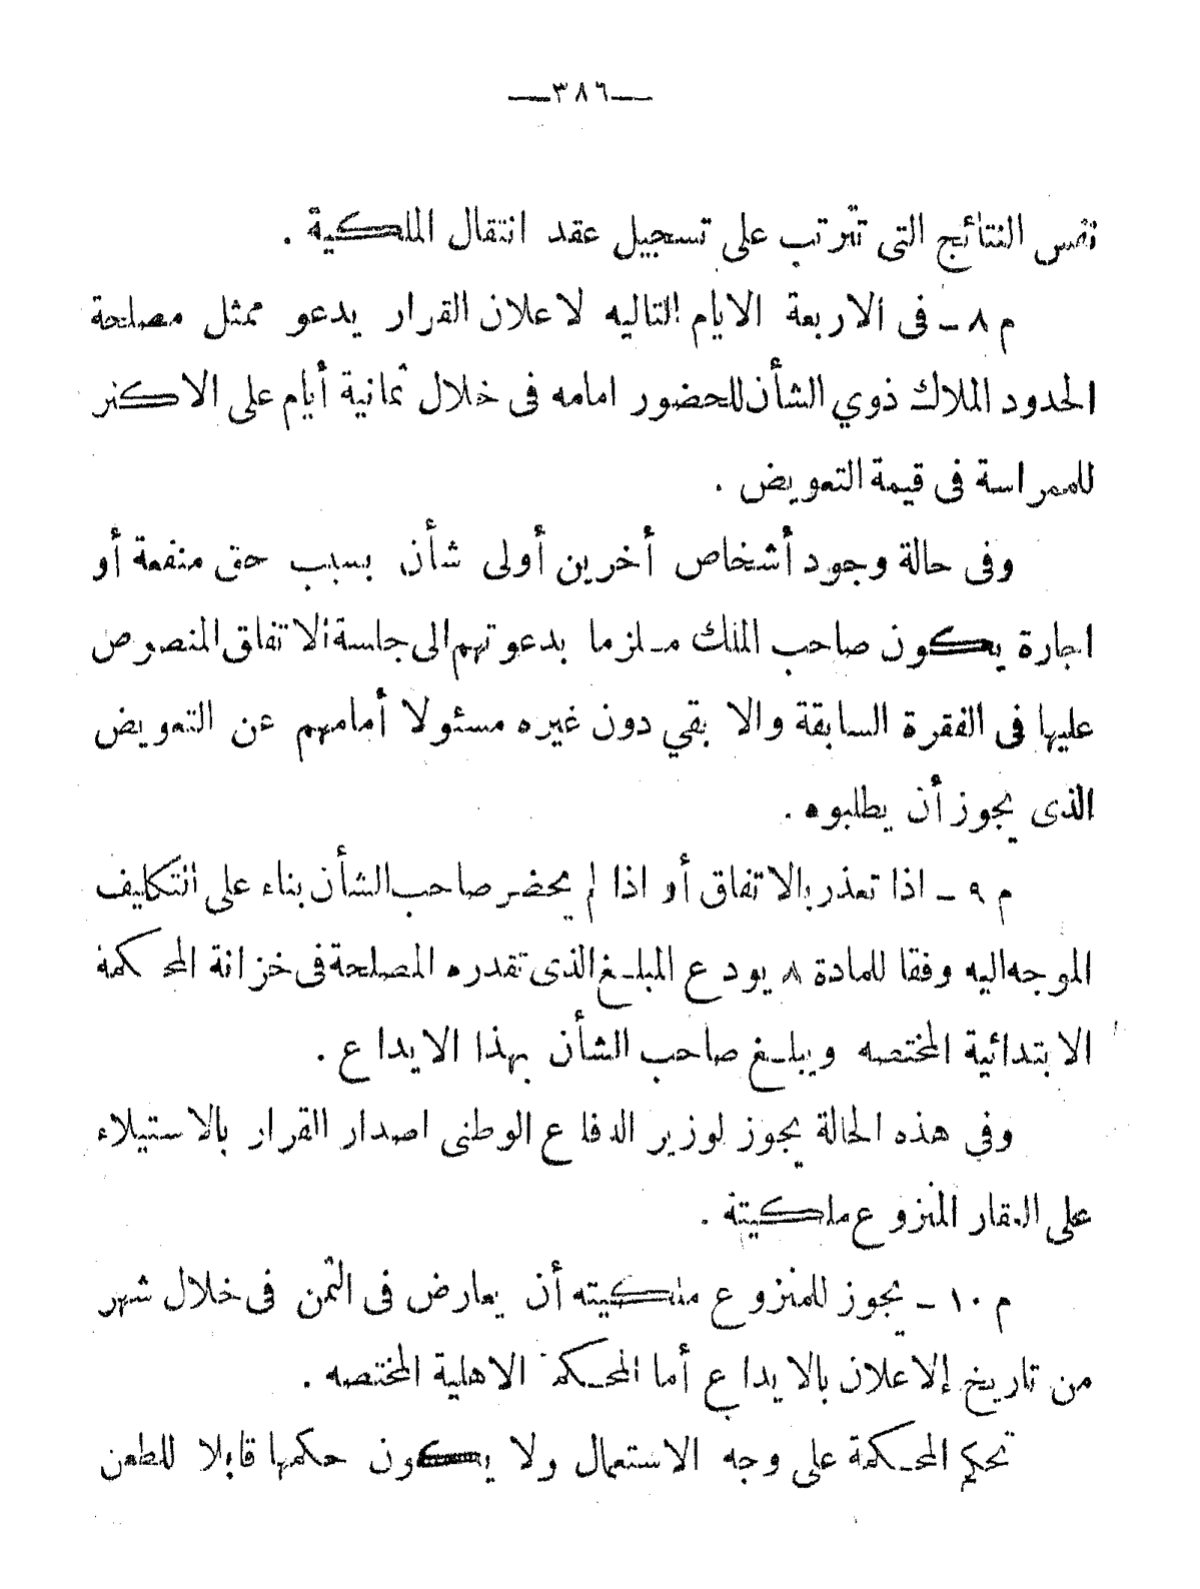 —٣٨٦—
نفس النتائج التى تترتب على تسجيل عقد انتقال الملكية .
م ٨ ـ فى الاربعة الايام التاليه لاعلان القرار يدعو ممثل مصلحة
الحدود الملاك ذوي الشأن للحضور امامه فى خلال ثمانية أيام على الاكثر
للممراسة فى قيمة التعويض .
وفى حالة وجود أشخاص أخرين أولى شأن بسبب حق منفعة أو
اجارة يكون صاحب الملك ملزما بدعوتهم الى جلسة الاتفاق المنصوص
عليها فى الفقرة السابقة والا بقي دون غيره مسئولا أمامهم عن التعويض
الذى يجوز أن يطلبوه .
م ٩ ـ اذا تعذر بالاتفاق أو اذا لم يحضر صاحب الشأن بناء على التكليف
الموجه اليه وفقا للمادة ٨ يودع المبلغ الذى تقدره المصلحة فى خزانة المحكمة
الابتدائية المختصه ويبلغ صاحب الشأن بهذا الايداع .
وفي هذه الحالة يجوز لوزير الدفاع الوطنى اصدار القرار بالاستيلاء
على العقار المنزوع ملكيته .
م ١٠ ـ يجوز للمنزوع ملكيته أن يعارض فى الثمن فى خلال شهر
من تاريخ إلاعلان بالايداع أما المحكمة الاهلية المختصه .
تحكم المحكمة على وجه الاستعمال ولا يكون حكمها قابلا للطعن